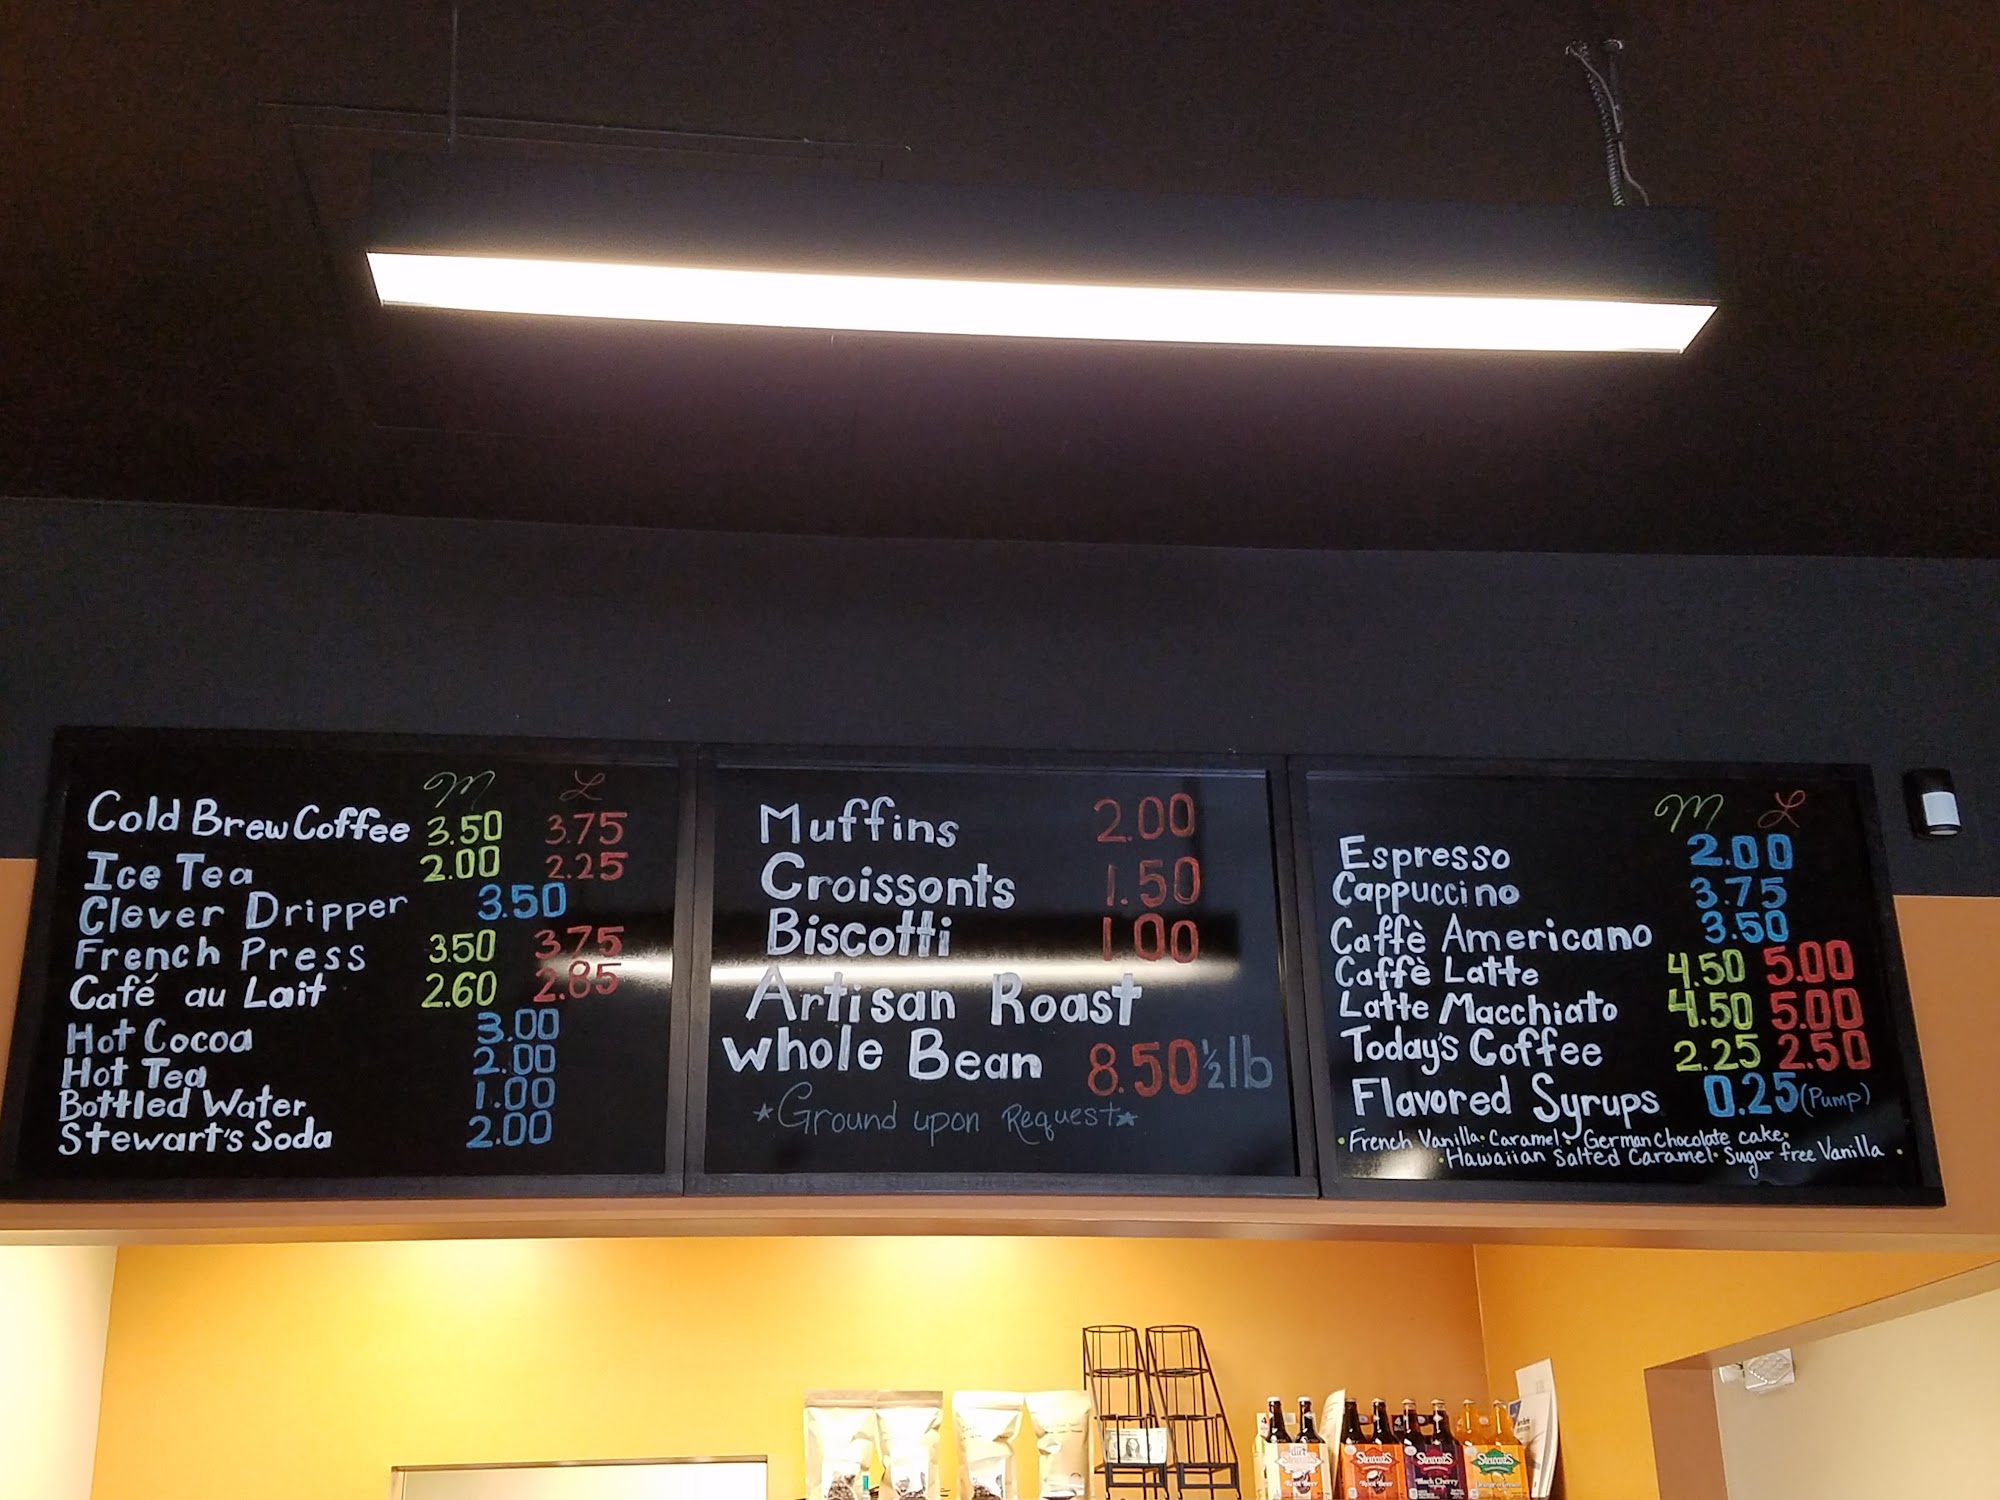 M L
Cold Brew Coffee 3.50 3.75
Ice Tea 2.00 2.25
Clever Dripper 3.50
French Press 3.50 3.75
Café au Lait 2.60 2.85
Hot Cocoa 3.00
Hot Tea 2.00
Bottled Water 1.00
Stewart's Soda 2.00
Muffins 2.00
Croissonts 1.50
Biscotti 1.00
Artisan Roast
Whole Bean 8.50 ½ lb
*Ground upon Request*
M L
Espresso 2.00
Cappuccino 3.75
Caffè Americano 3.50
Caffè Latte 4.50 5.00
Latte Macchiato 4.50 5.00
Today's Coffee 2.25 2.50
Flavored Syrups 0.25 (Pump)
• French Vanilla • Caramel • German Chocolate cake •
• Hawaiian Salted Caramel • Sugar free Vanilla •
Stewart's
Root Beer
Stewart's
Black Cherry
Stewart's